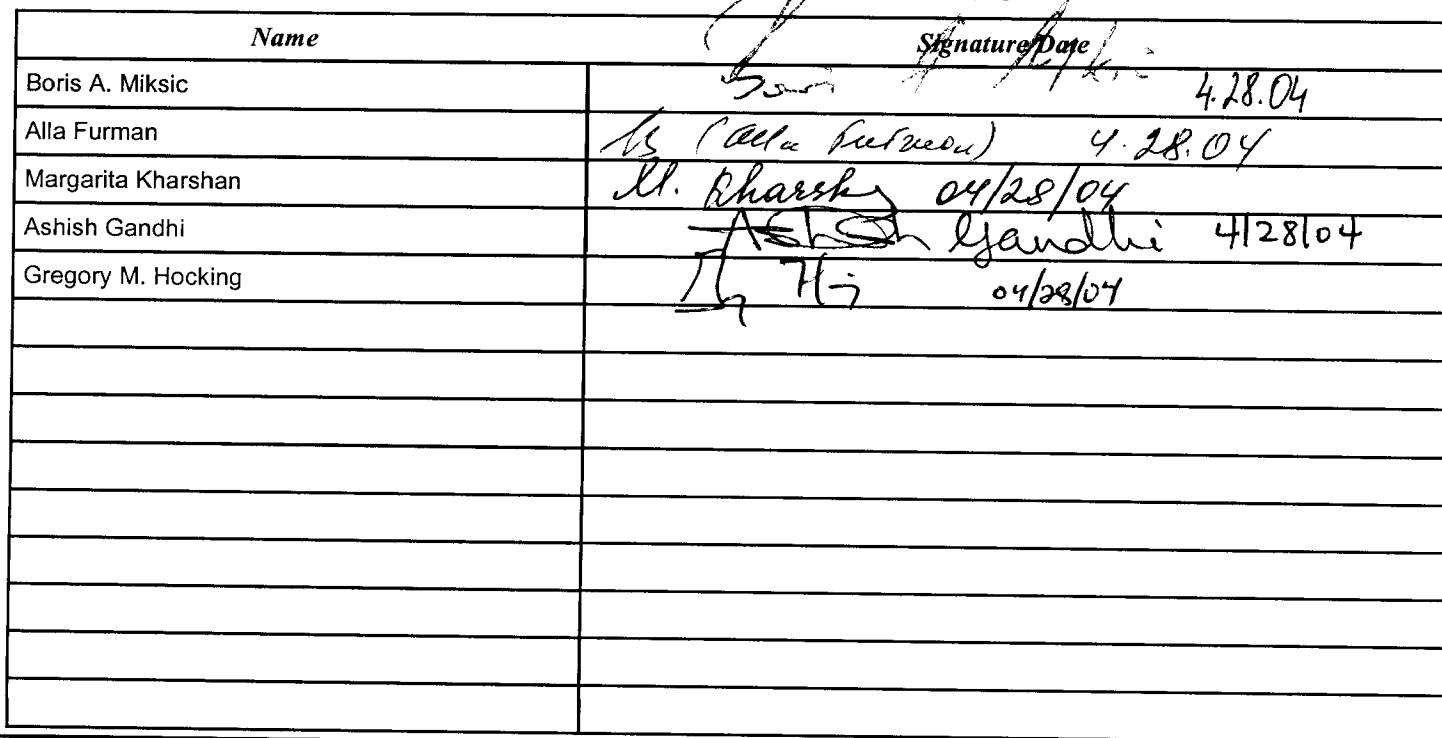 Name Signature/Date
Boris A. Miksic Boris A Miksic 4.28.04
Alla Furman (Alla Furman) 4.28.04
Margarita Kharshan M. Kharshan 04/28/04
Ashish Gandhi Ashish Gandhi 4/28/04
Gregory M. Hocking 04/28/04